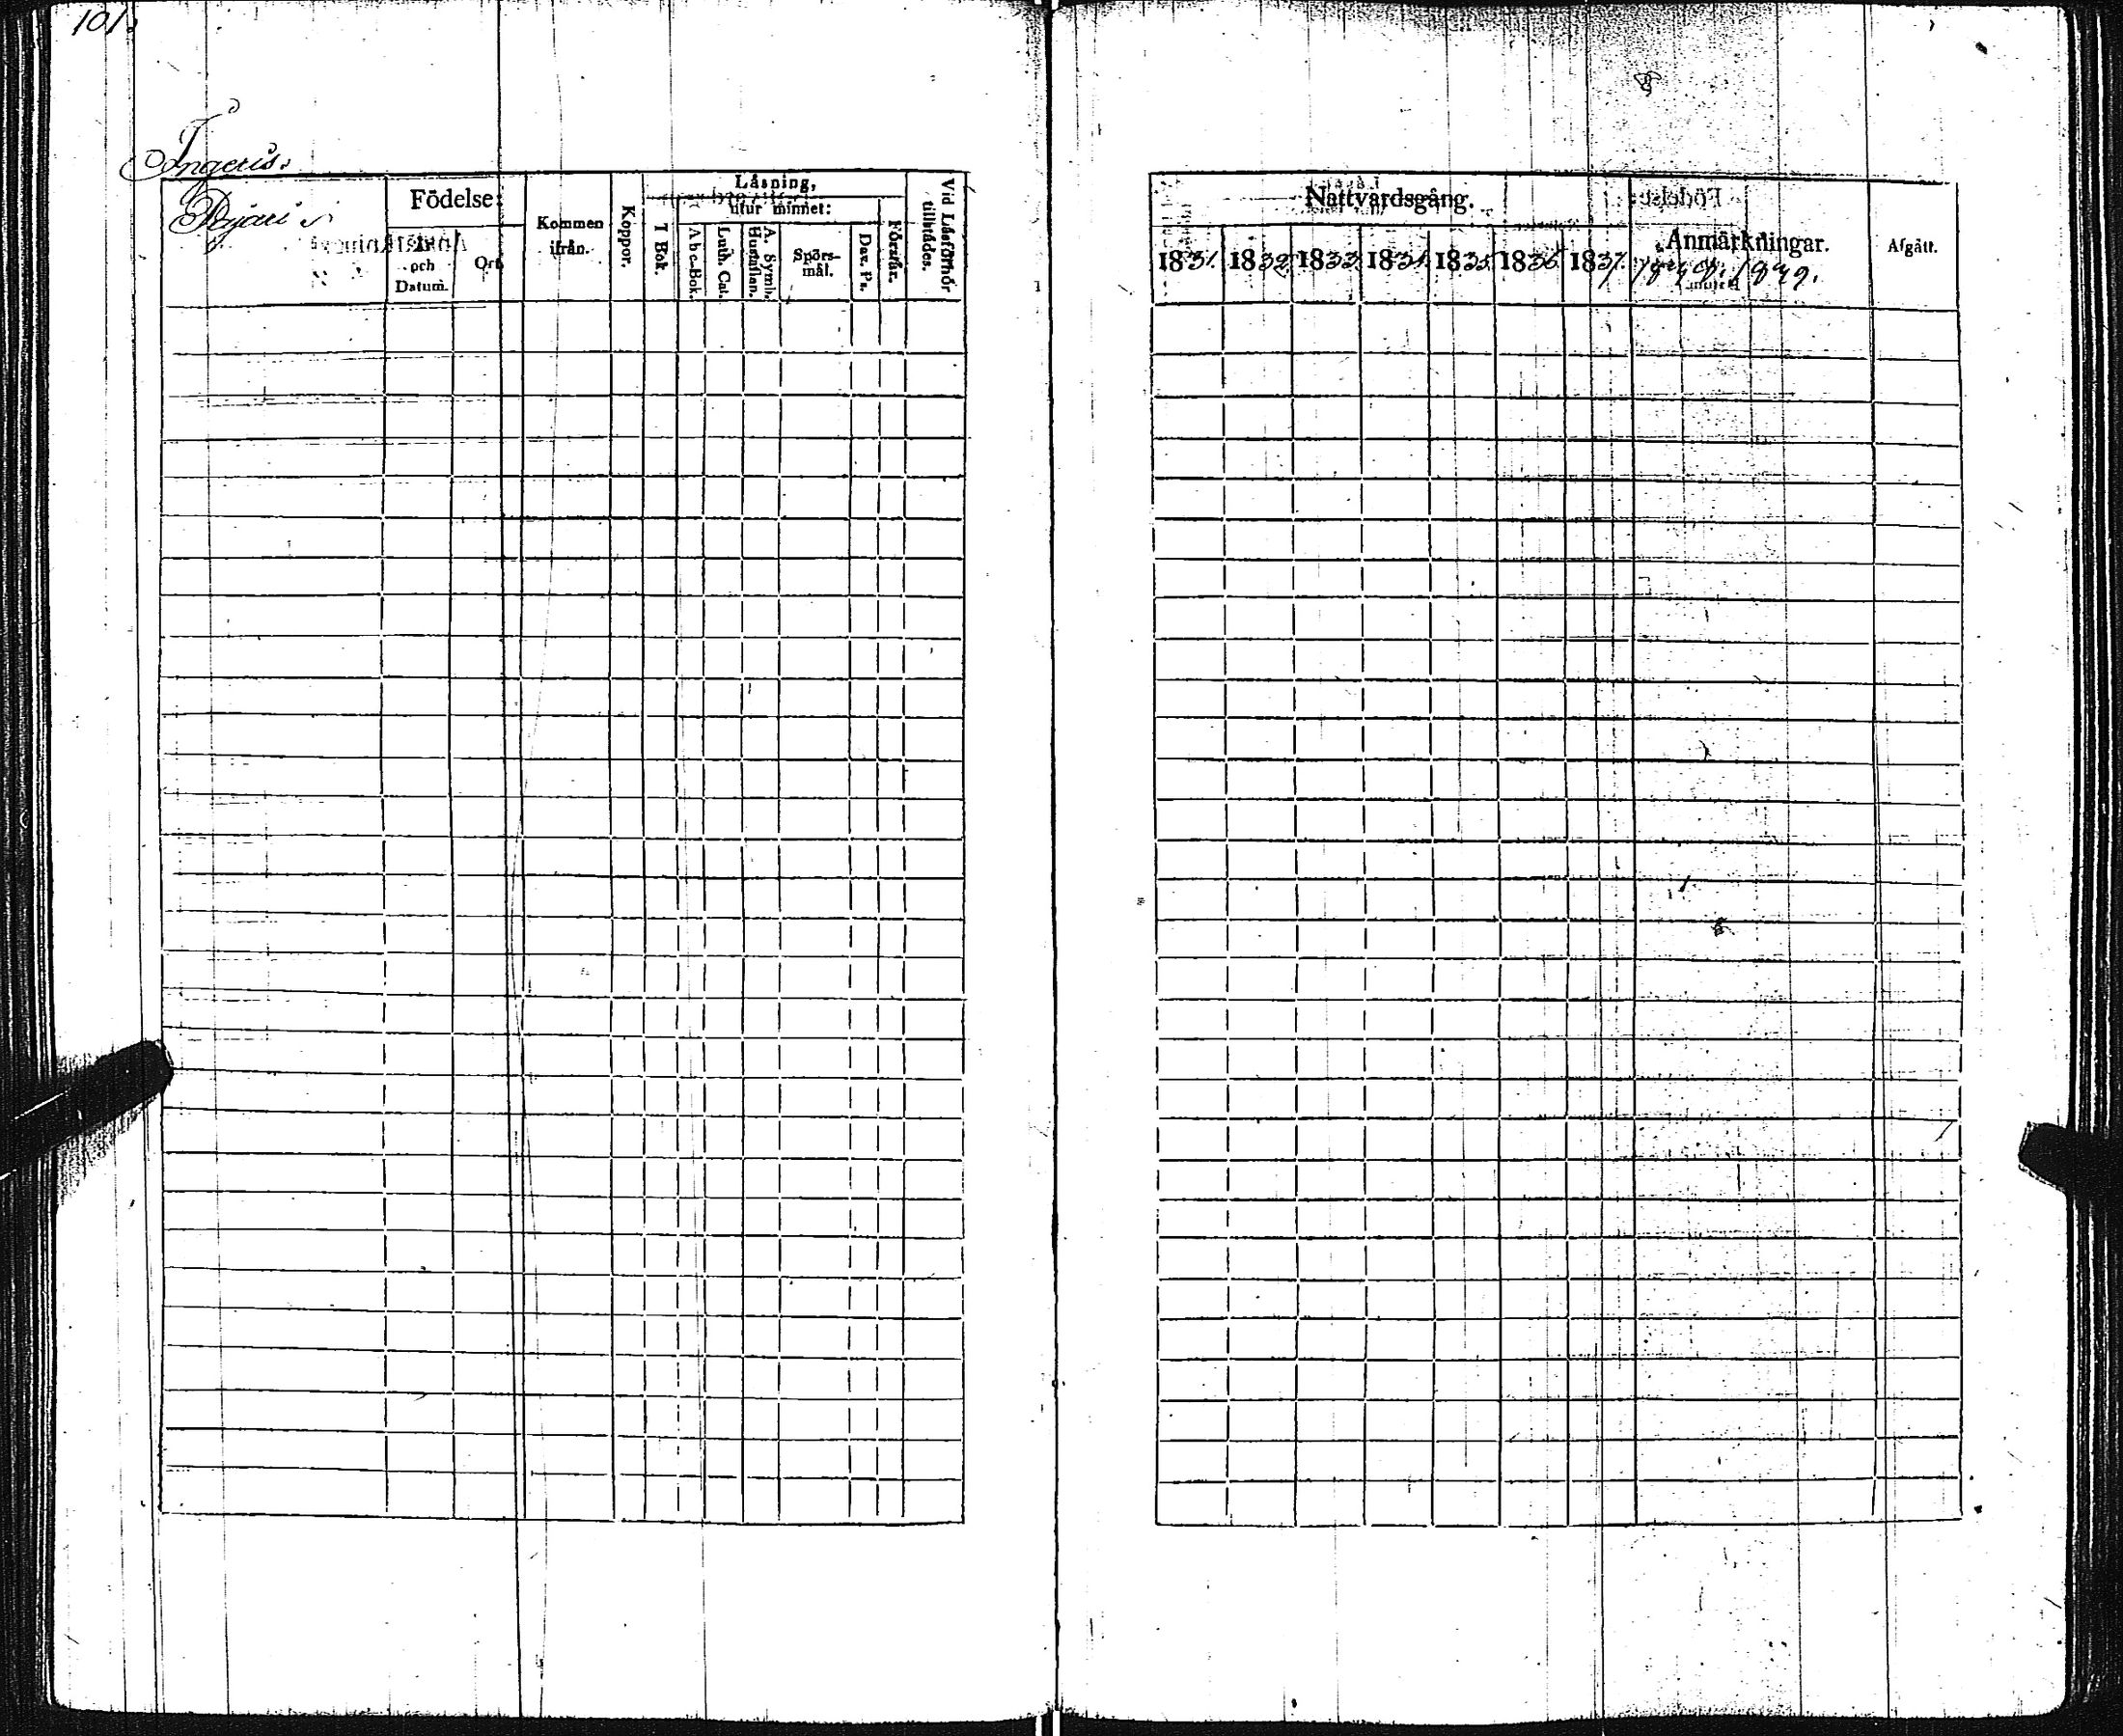 101.
Ingeris.
Födelse:
Och
Datum.
Ort
Kommen
ifrån.
Koppor.
Låsning,
utur minnet:
I Bok.
Abc-Bok.
Luth. Cat.
A. Symb.
Hustaflan.
Spörs-
mål.
Dav. Ps.
Förstår.
Vid Läsförhör
tillstädes.
Nattvardsgång.
Anmärkningar.
Afgått.
1831. 1832 1833 1834. 1835 1836 1837. 1838. 1839.